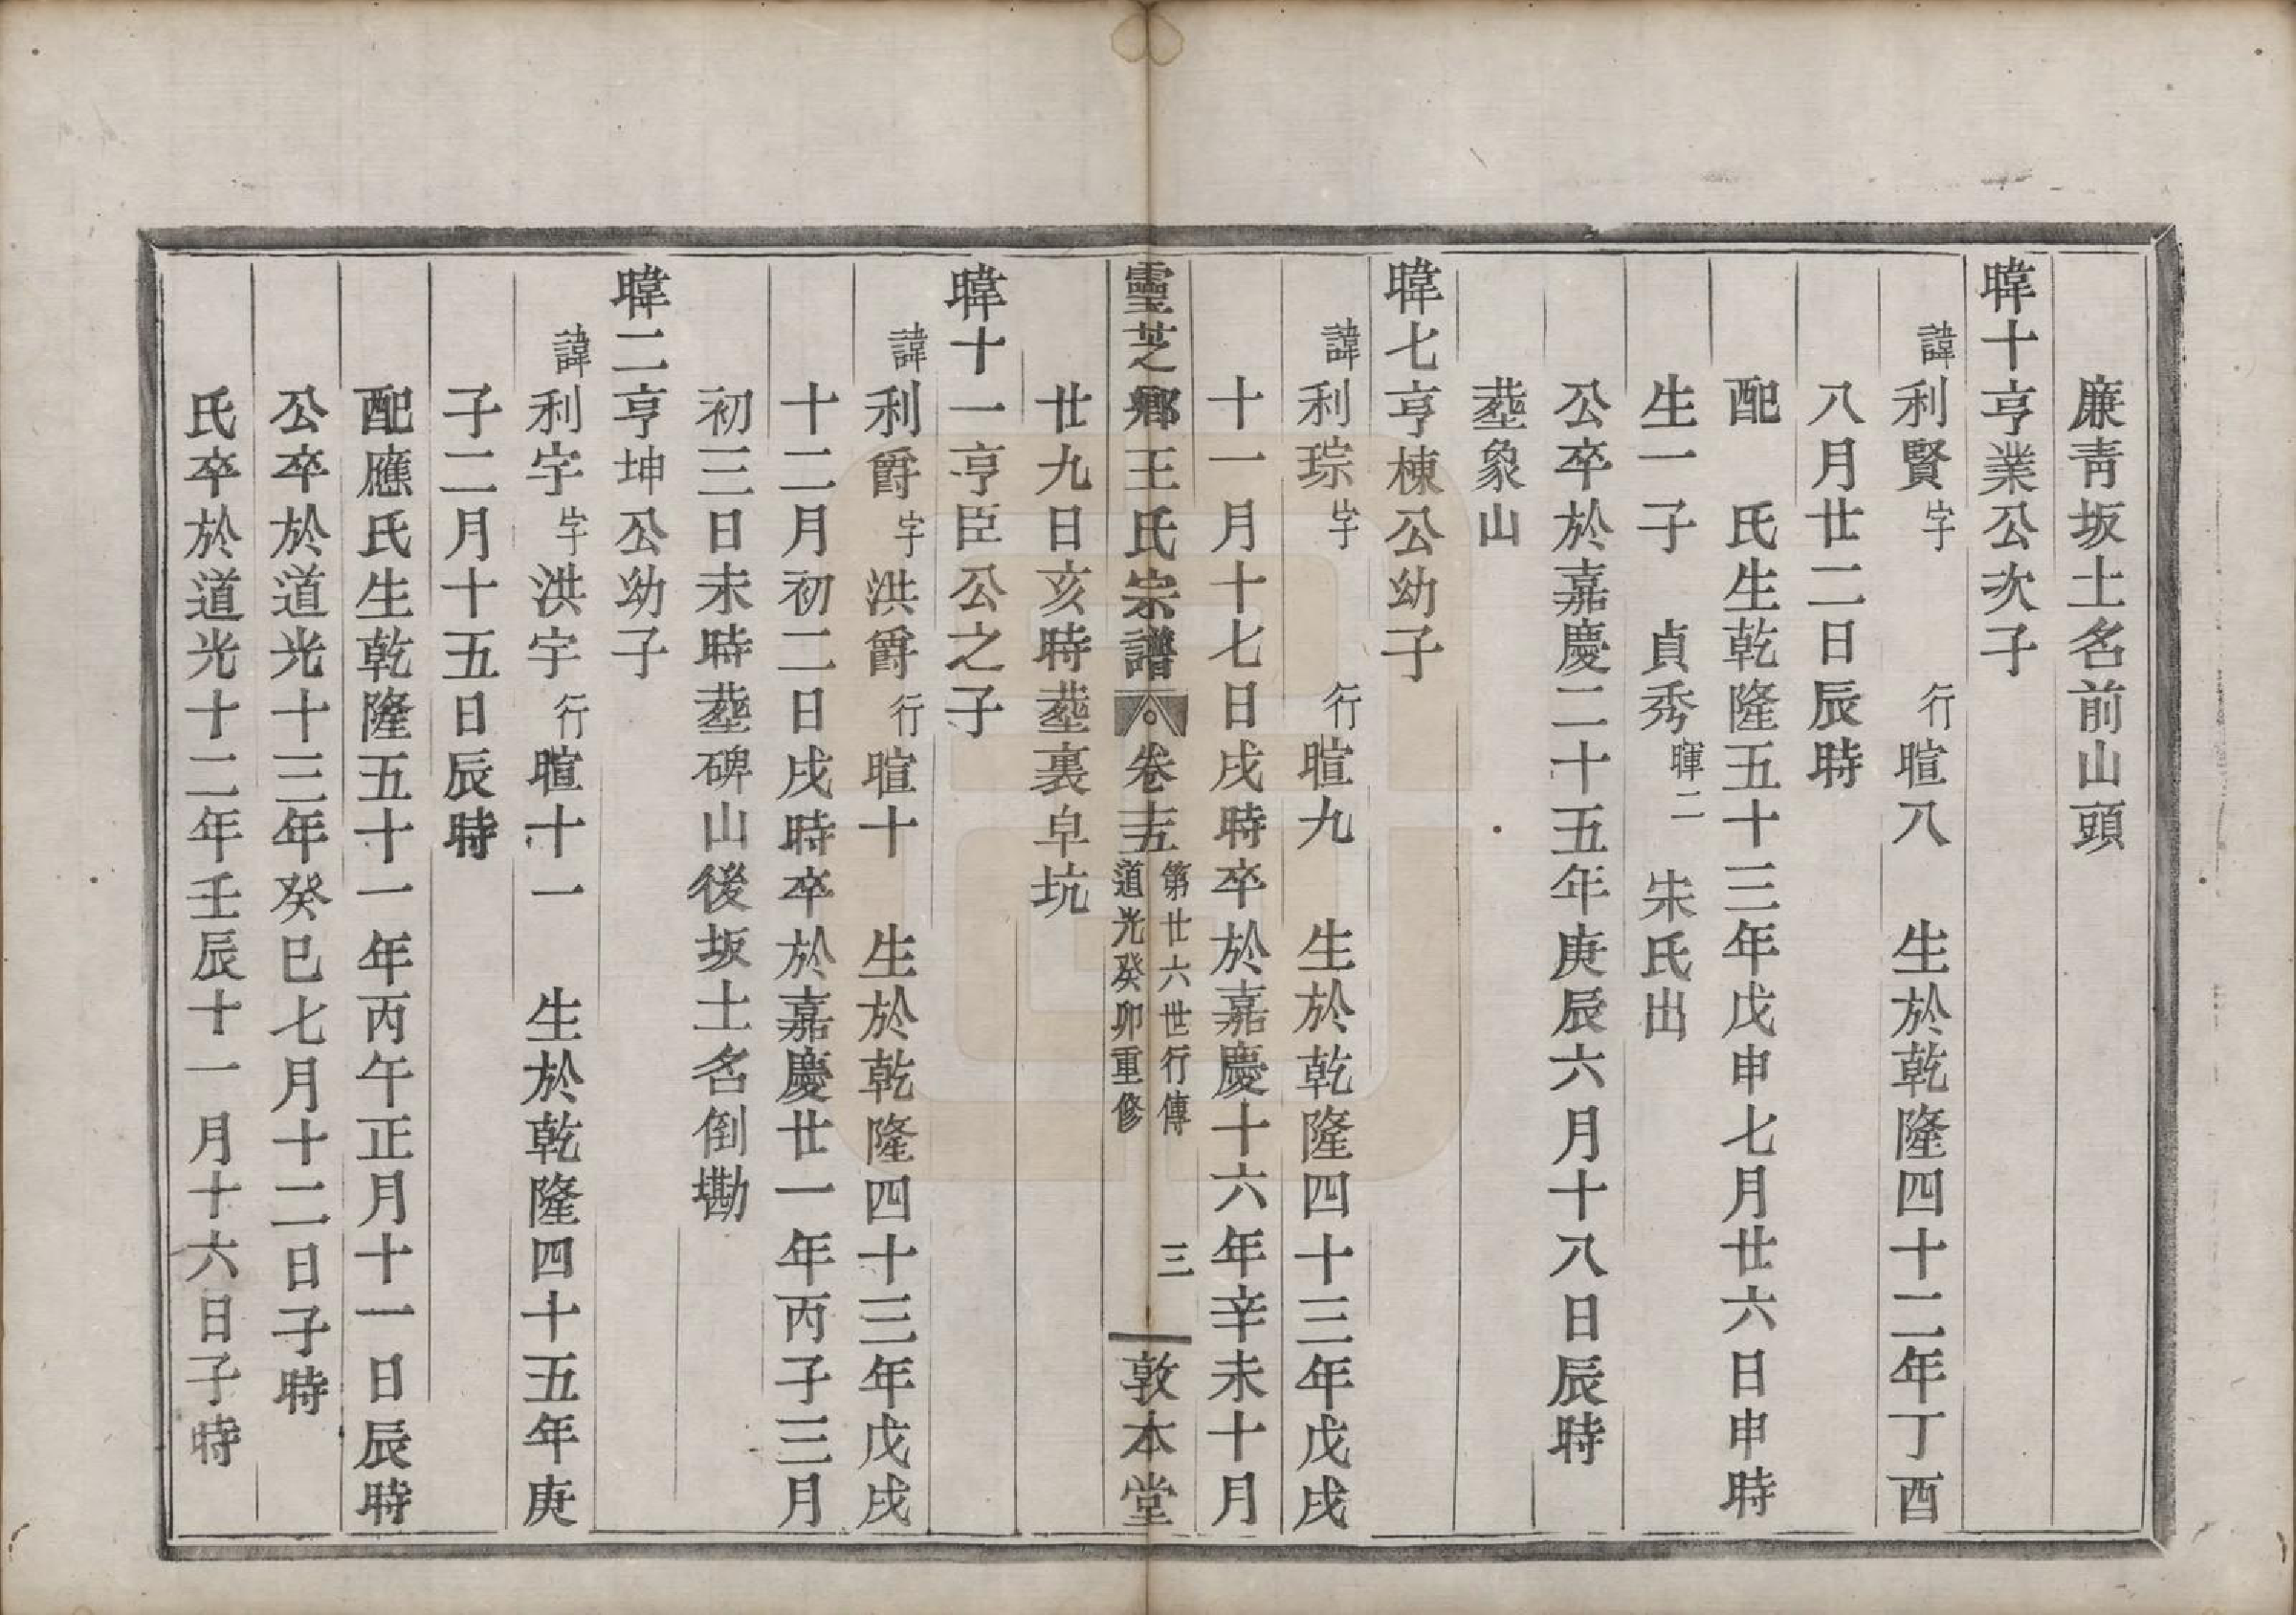 廉青坂土名前山頭
暐十亨業公次子
諱利賢字 行暄八 生於乾隆四十二年丁酉
八月廿二日辰時
配 氏生乾隆五十三年戊申七月廿六日申時
生一子 貞秀暉二 朱氏出
公卒於嘉慶二十五年庚辰六月十八日辰時
塟象山
暐七亨棟公幼子
諱利琮字 行暄九 生於乾隆四十三年戊戌
十一月十七日戌時卒於嘉慶十六年辛未十月
廿九日亥時塟裏皁坑
靈芝鄉王氏宗譜 卷十五 第廿六世行傳 道光癸卯重修 三 敦本堂
暐十一亨臣公之子
諱利爵字洪爵行暄十 生於乾隆四十三年戊戌
十二月初二日戌時卒於嘉慶廿一年丙子三月
初三日未時塟碑山後坂土名倒墈
暐二亨坤公幼子
諱利宇字洪宇行暄十一 生於乾隆四十五年庚
子二月十五日辰時
配應氏生乾隆五十一年丙午正月十一日辰時
公卒於道光十三年癸巳七月十二日子時
氏卒於道光十二年壬辰十一月十六日子時